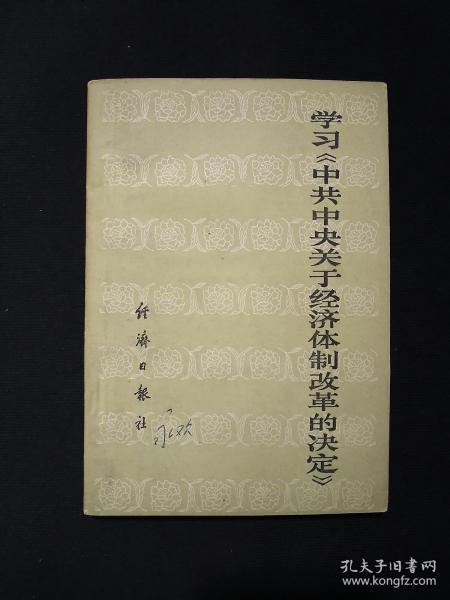 学习《中共中央关于经济体制改革的决定》
经濟日報社
孔夫子旧书网
www.kongfz.com